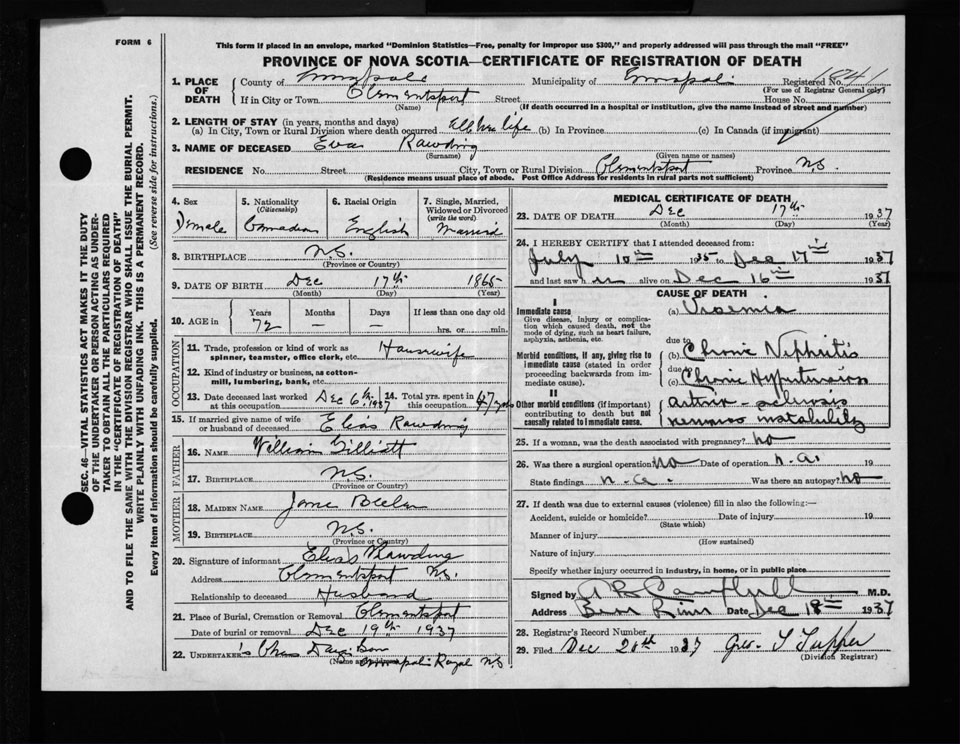 FORM 6
This form if placed in an envelope, marked "Dominion Statistics—Free, penalty for improper use $300," and properly addressed will pass through the mail "FREE"
PROVINCE OF NOVA SCOTIA—CERTIFICATE OF REGISTRATION OF DEATH
1. PLACE OF DEATH
County of Annapolis Municipality of Annapolis Registered No. 1841
(For use of Registrar General only)
If in City or Town Clementsport Street House No.
(Name) (If death occurred in a hospital or institution, give the name instead of street and number)
2. LENGTH OF STAY (in years, months and days)
(a) In City, Town or Rural Division where death occurred All her life (b) In Province (c) In Canada (if immigrant)
3. NAME OF DECEASED Eva Rawding
(Surname) (Given name or names)
RESIDENCE No. Street City, Town or Rural Division Clementsport Province N.S.
(Residence means usual place of abode. Post Office Address for residents in rural parts not sufficient)
SEC. 46—VITAL STATISTICS ACT MAKES IT THE DUTY
OF THE UNDERTAKER OR PERSON ACTING AS UNDER-
TAKER TO OBTAIN ALL THE PARTICULARS REQUIRED
IN THE "CERTIFICATE OF REGISTRATION OF DEATH"
AND TO FILE THE SAME WITH THE DIVISION REGISTRAR WHO SHALL ISSUE THE BURIAL PERMIT.
WRITE PLAINLY WITH UNFADING INK. THIS IS A PERMANENT RECORD.
Every item of information should be carefully supplied. (See reverse side for instructions.)
4. Sex
Female
5. Nationality
(Citizenship)
Canadian
6. Racial Origin
English
7. Single, Married,
Widowed or Divorced
(write the word)
Married
8. BIRTHPLACE N.S.
(Province or Country)
9. DATE OF BIRTH Dec 17th 1865
(Month) (Day) (Year)
10. AGE in
Years Months Days If less than one day old
72 — — hrs. or min.
OCCUPATION
11. Trade, profession or kind of work as Housewife
spinner, teamster, office clerk, etc.
12. Kind of industry or business, as cotton-
mill, lumbering, bank, etc.
13. Date deceased last worked at this occupation Dec 6th 1937
14. Total yrs. spent in this occupation 47 years
15. If married give name of wife
or husband of deceased Elias Rawding
FATHER
16. NAME William Gilliatt
17. BIRTHPLACE N.S.
(Province or Country)
MOTHER
18. MAIDEN NAME Jane Beeler
19. BIRTHPLACE N.S.
(Province or Country)
20. Signature of informant Elias Rawding
Address Clementsport N.S.
Relationship to deceased Husband
21. Place of Burial, Cremation or Removal Clementsport
Date of burial or removal Dec 19th 1937
22. UNDERTAKER'S Chas
(Name and address) Annapolis Royal N.S.
MEDICAL CERTIFICATE OF DEATH
23. DATE OF DEATH Dec 17th 1937
(Month) (Day) (Year)
24. I HEREBY CERTIFY that I attended deceased from:
July 10th 1935 to Dec 17th 1937
and last saw h er alive on Dec 16th 1937
CAUSE OF DEATH
I
Immediate cause
Give disease, injury or complica-
tion which caused death, not the
mode of dying, such as heart failure,
asphyxia, asthenia, etc.
(a) Uraemia
Morbid conditions, if any, giving rise to
immediate cause (stated in order
proceeding backwards from im-
mediate cause).
due to
(b) Chronic Nephritis
due to
(c) Chronic Hypertension
II
Other morbid conditions (if important)
contributing to death but not
causally related to immediate cause.
Arterio-sclerosis
nervous instability
25. If a woman, was the death associated with pregnancy? no
26. Was there a surgical operation no Date of operation n.a. 19
State findings n.a. Was there an autopsy? no
27. If death was due to external causes (violence) fill in also the following:—
Accident, suicide or homicide? Date of injury 19
(State which)
Manner of injury
(How sustained)
Nature of injury
Specify whether injury occurred in industry, in home, or in public place
Signed by A B Campbell M.D.
Address Bear River Date Dec 18th 1937
28. Registrar's Record Number
29. Filed Dec 20th 1937 Geo. T Tupper
(Division Registrar)